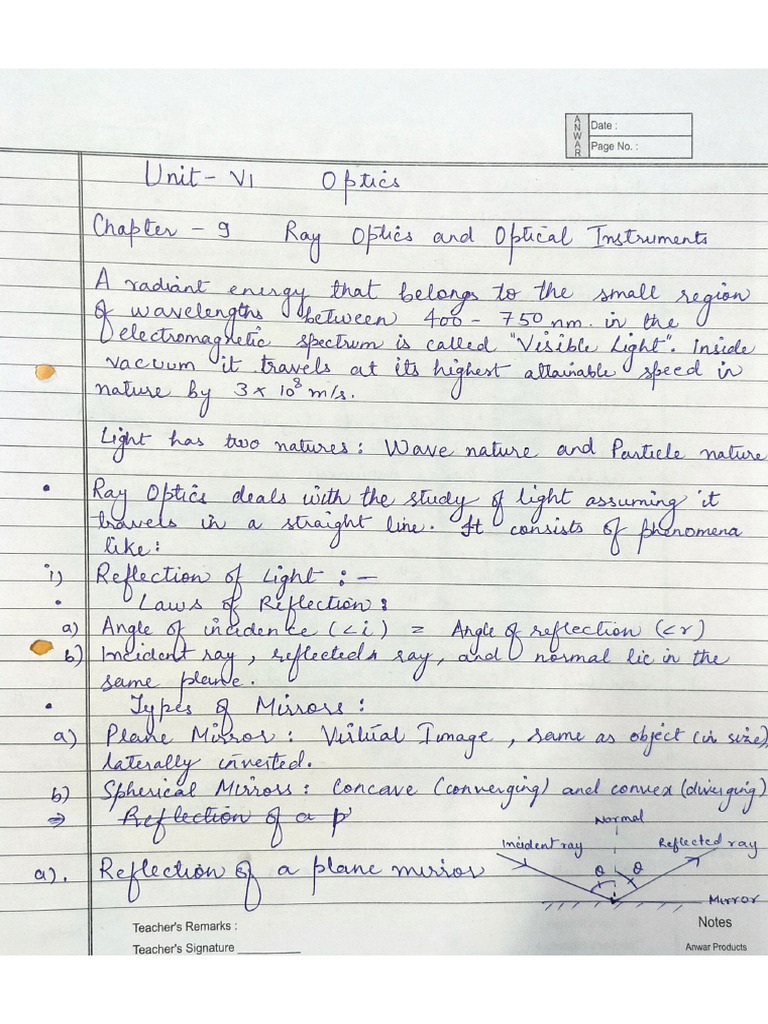 ANWAR
Date :
Page No. :
Unit - VI Optics
Chapter - 9 Ray Optics and Optical Instruments
A radiant energy that belongs to the small region
of wavelengths between 400 - 750 nm. in the
electromagnetic spectrum is called "Visible Light". Inside
vacuum it travels at its highest attainable speed in
nature by 3 × 10⁸ m/s.
Light has two natures: Wave nature and Particle nature
• Ray Optics deals with the study of light assuming it
travels in a straight line. It consists of phenomena
like:
i) Reflection of Light : —
• Laws of Reflection:
a) Angle of incidence (<i) = Angle of reflection (<r)
b) Incident ray, reflected ray, and normal lie in the
same plane.
• Types of Mirrors:
a) Plane Mirror: Virtual Image, same as object (in size),
laterally inverted.
b) Spherical Mirrors: Concave (converging) and convex (diverging)
⇒ Reflection of a p
Normal
Incident ray
Reflected ray
θ θ
a). Reflection of a plane mirror
Mirror
Teacher's Remarks :
Notes
Teacher's Signature
Anwar Products